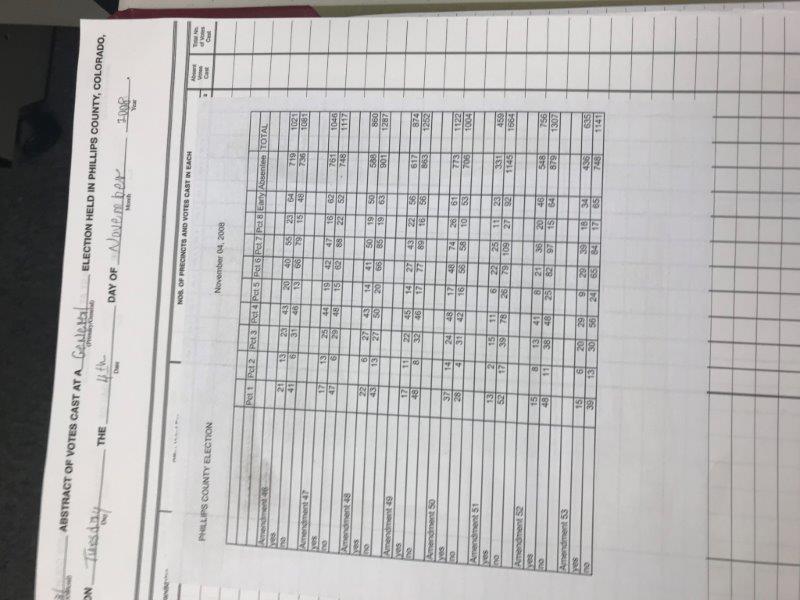 ABSTRACT OF VOTES CAST AT A General ELECTION HELD IN PHILLIPS COUNTY, COLORADO,
(Primary/General)
ON Tuesday THE 4th DAY OF November 2008.
(Day) Date Month Year
NOS. OF PRECINCTS AND VOTES CAST IN EACH
Absent Votes Cast
Total No. of Votes Cast
PHILLIPS COUNTY ELECTION November 04, 2008
Pct 1 Pct 2 Pct 3 Pct 4 Pct 5 Pct 6 Pct 7 Pct 8 Early Absentee TOTAL
Amendment 46
yes 21 13 23 43 20 40 55 23 64 719 1021
no 41 6 31 46 13 66 79 15 48 736 1081
Amendment 47
yes 17 13 25 44 19 42 47 16 62 761 1046
no 47 6 29 48 15 62 88 22 52 748 1117
Amendment 48
yes 22 6 27 43 14 41 50 19 50 588 860
no 43 13 27 50 20 66 85 19 63 901 1287
Amendment 49
yes 17 11 22 45 14 27 43 22 56 617 874
no 48 8 32 46 17 77 89 16 56 863 1252
Amendment 50
yes 37 14 24 48 17 48 74 26 61 773 1122
no 28 4 31 42 16 56 58 10 53 706 1004
Amendment 51
yes 13 2 15 11 6 22 25 11 23 331 459
no 52 17 39 78 26 79 109 27 92 1145 1664
Amendment 52
yes 15 8 13 41 8 21 36 20 46 548 756
no 48 11 38 48 25 82 97 15 64 879 1307
Amendment 53
yes 15 6 20 29 9 29 39 18 34 436 635
no 39 13 30 56 24 65 84 17 65 748 1141